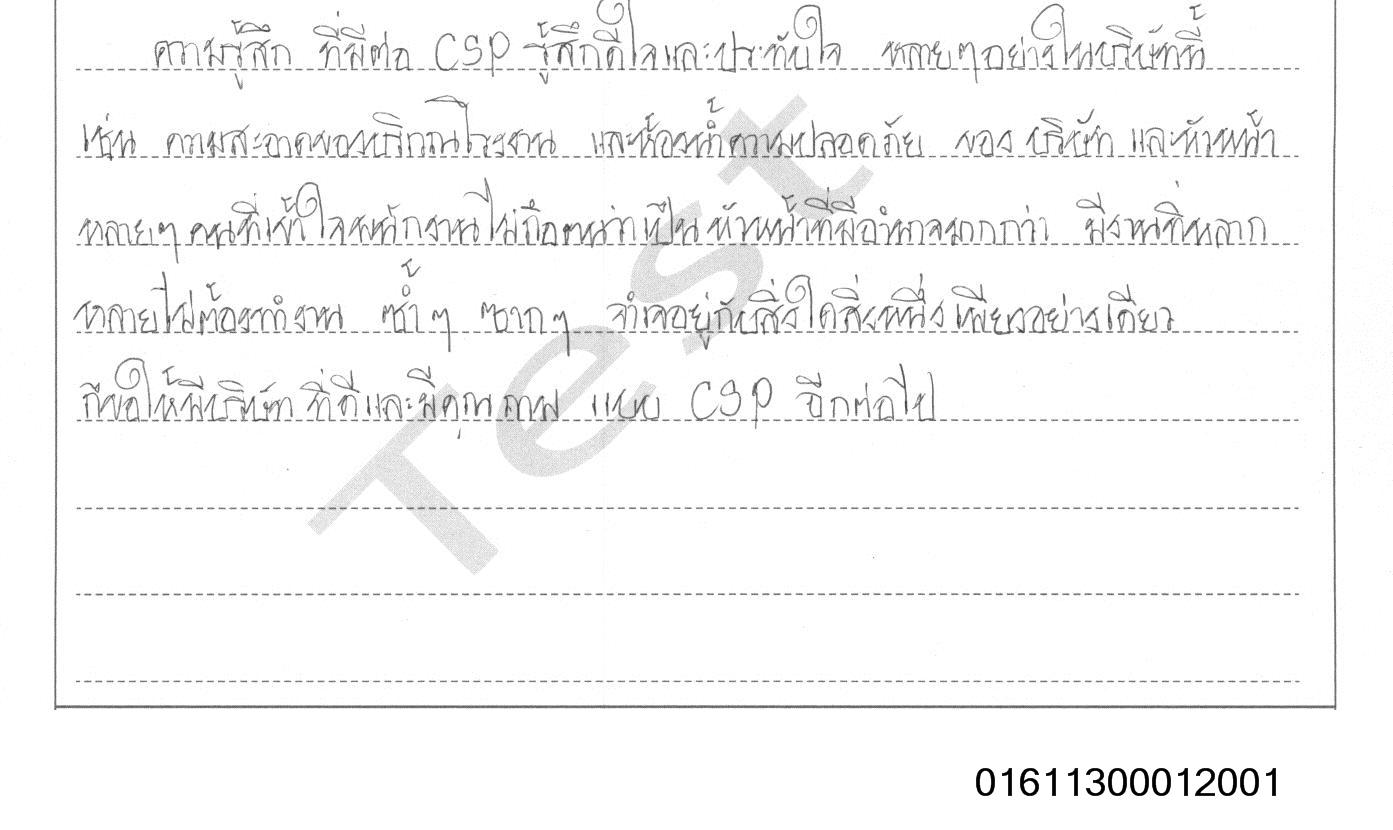 ความรู้สึก ที่มีต่อ CSP รู้สึกดีใจและประทับใจ หลายๆอย่างในบริษัทนี้
เช่น ความสะอาดของบริเวณโรงงาน และห้องน้ำความปลอดภัย ของ บริษัท และหัวหน้า
หลายๆ คนที่เข้าใจพนักงานไม่ถือตนว่าเป็น หัวหน้าที่มีอำนาจมากกว่า มีงานที่หลาก
หลายไม่ต้องทำงาน ซ้ำๆ ซากๆ จำเจอยู่กับสิ่งใดสิ่งหนึ่งเพียงอย่างเดียว
ก็ขอให้มีบริษัท ที่ดีและมีคุณภาพ แบบ CSP อีกต่อไป
Test
01611300012001